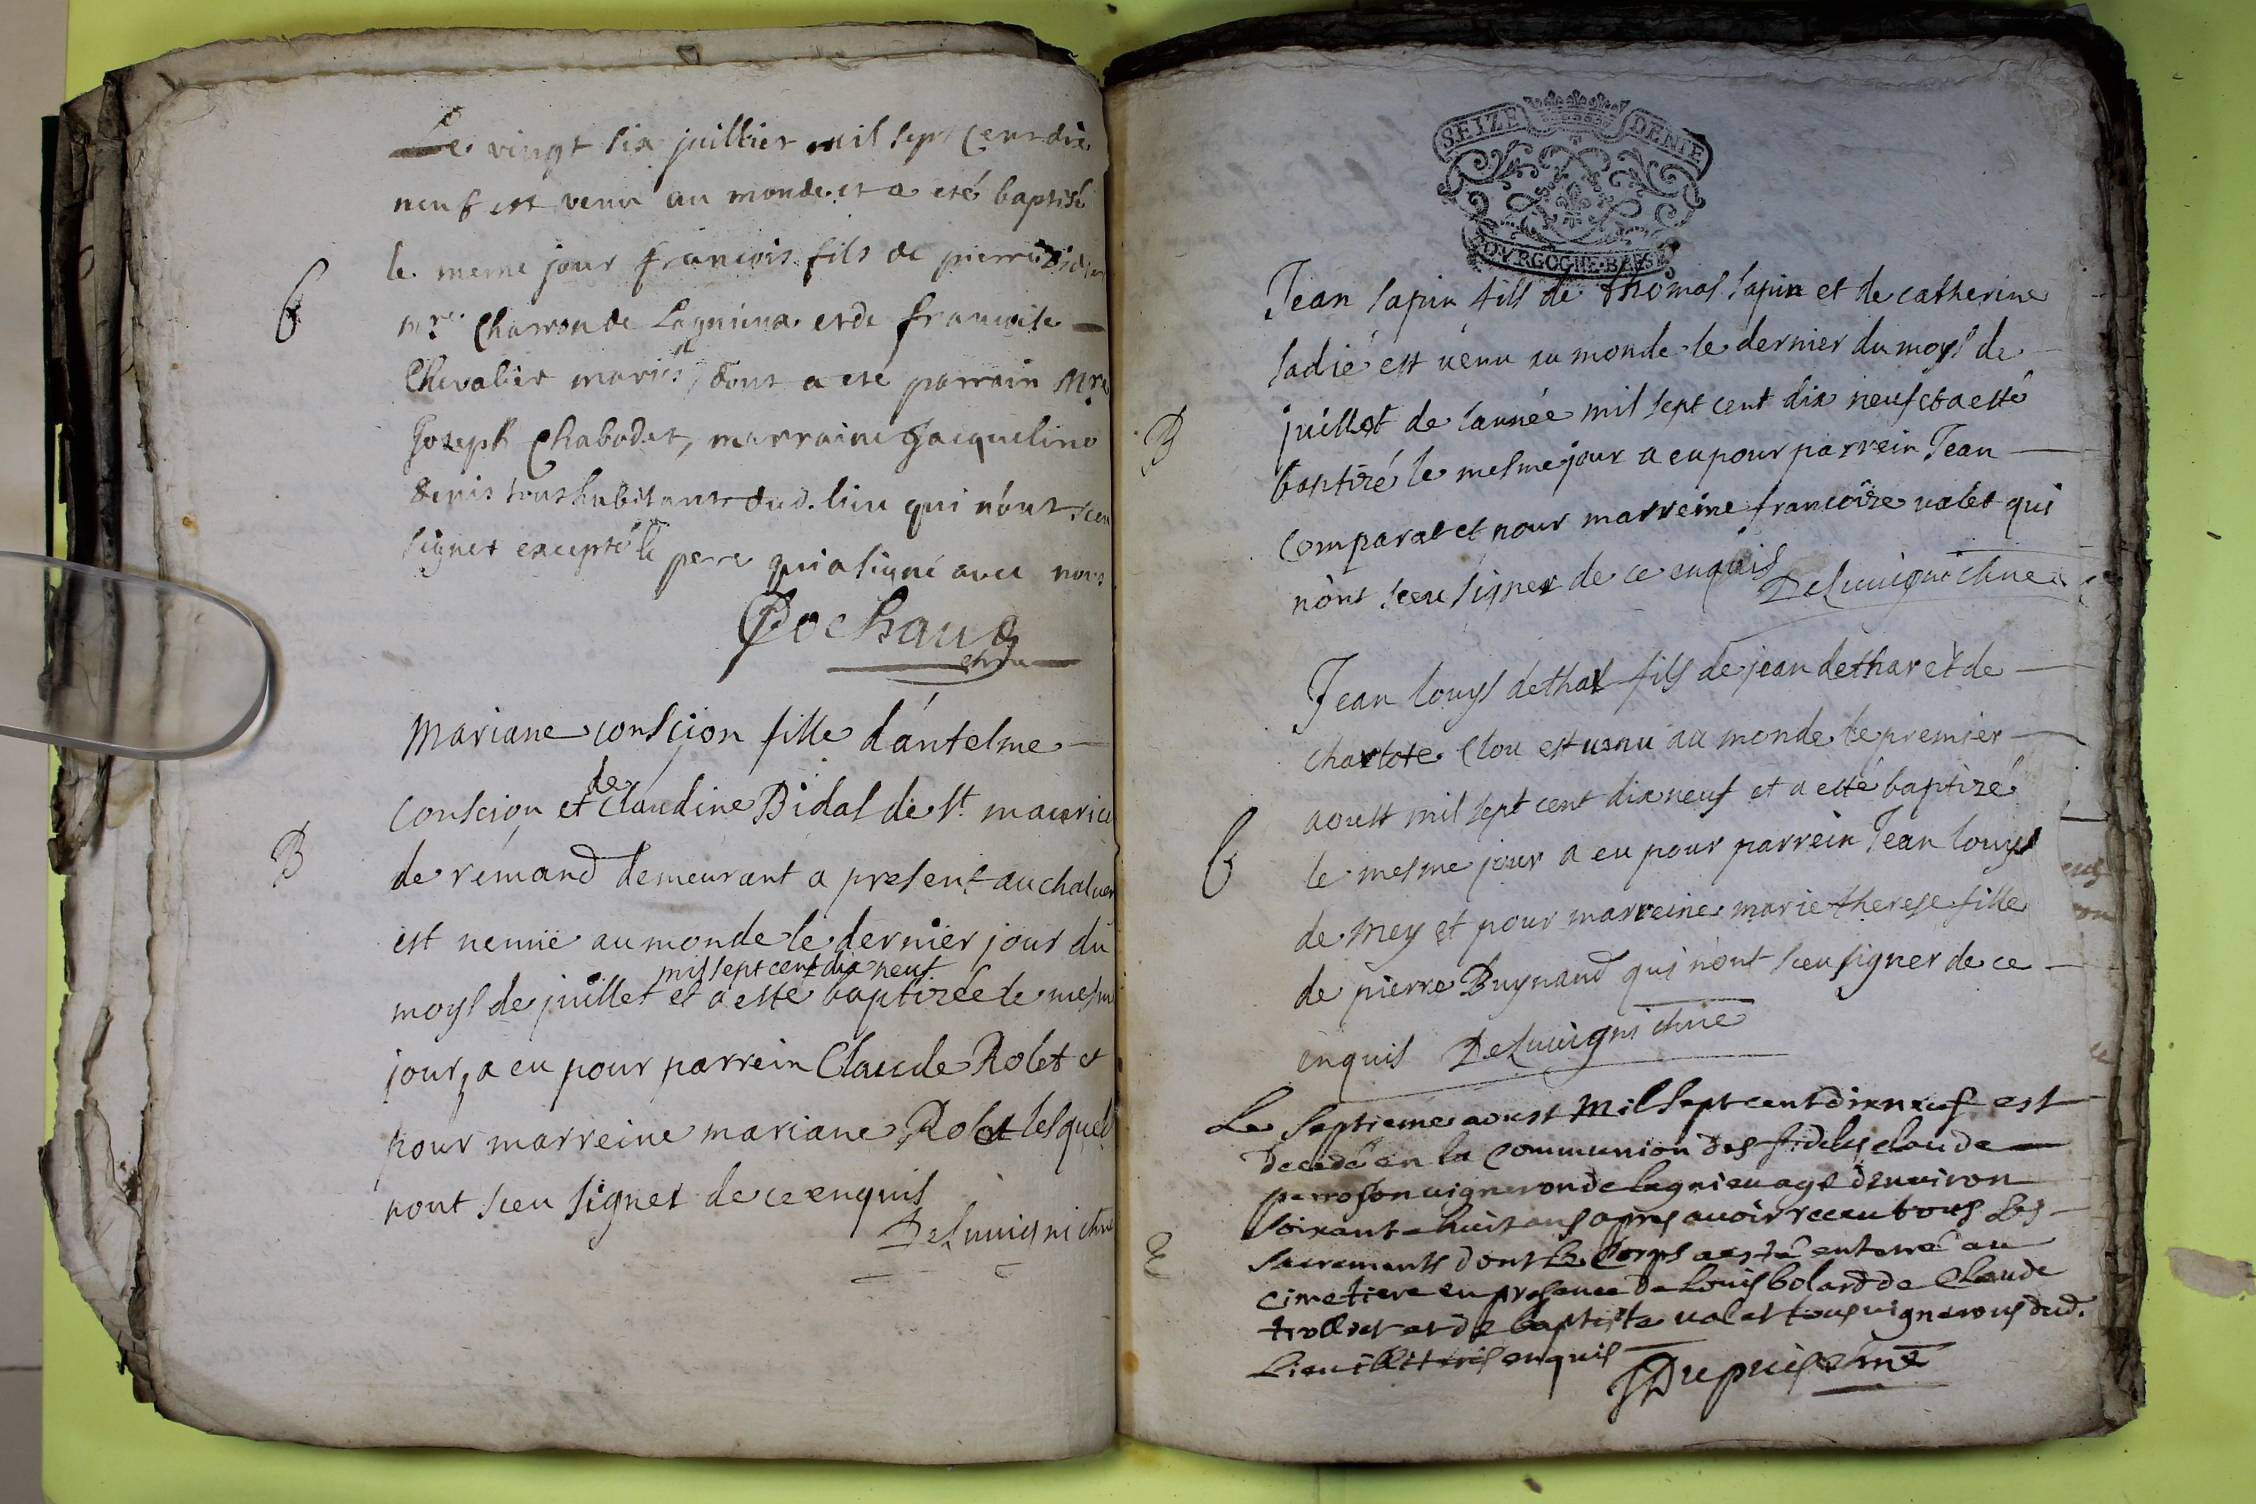 Le vingt six juillier mil sept cent dix
neuf est venu au monde et a eté baptisé
le meme jour francois fils de pierre
B
mre Charron de Lagnieux et de francoise
Chevalier mariés, dont a eté parrain Mre
Joseph Chabodet, marraine Jacqueline
denis tous habitants dud. lieu qui n'ont sceu
signer excepté le pere qui a signé avec nous
Cochaud
Mariane conscion fille d'antelme
Conscion et de claudine Bidal de st. maurice
B
de rémand demeurant a present au
est venüe au monde le dernier jour du
mil sept cent dix neuf
moys de juillet et a esté baptizée le mesm
jour, a eu pour parrein Claude Rolet et
pour marreine mariane Rolet lesquels
nont sceu signer de ce enquis
SEIZE DENIE
BOVRGOGNE BRESSE
Jean sapin fils de thomas sapin et de catherine
sadié est venu au monde le dernier du moys de
juillet de l'année mil sept cent dix neuf et a esté
B
baptizé le mesme jour a eu pour parrein Jean
Comparat et pour marreine francoize valet qui
n'ont sceu signer de ce enquis
Jean louys dethar fils de jean dethar et de
charlote Clou est venu au monde le premier
aoust mil sept cent dix neuf et a esté baptizé
B
le mesme jour a eu pour parrein Jean louys
de Mey et pour marreine marie therese fille
de pierre Buynand qui n'ont sceu signer de ce
enquis
Le Septieme aoust Mil Sept cent dix neuf est
decedé en la Communion des fideles claude
perroson vigneron de lagnieu agé d'environ
soixante huit ans apres avoir receu tous les
E
sacrements dont le Corps a esté enterré au
cimetiere en presence de Louis bolard de Claude
trolliet et de baptiste valet tous vignerons dud.
Lieu illiterés enquis
Dupuis